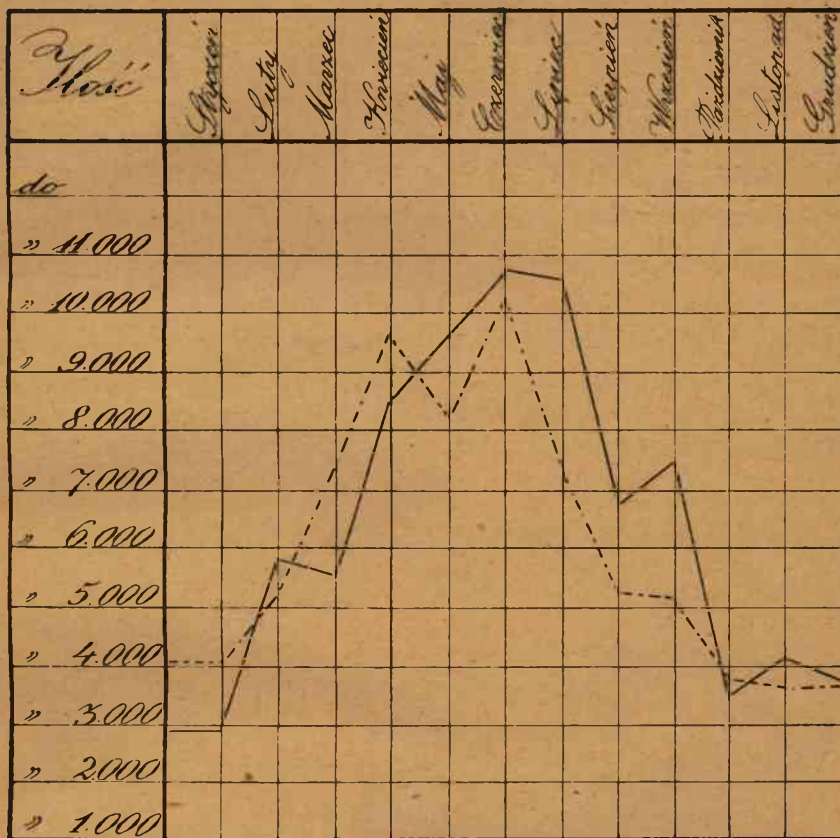 Ilość
Styczeń
Luty
Marzec
Kwiecień
Maj
Czerwiec
Lipiec
Sierpień
Wrzesień
Październik
Listopad
Grudzień
do
" 11.000
" 10.000
" 9.000
" 8.000
" 7.000
" 6.000
" 5.000
" 4.000
" 3.000
" 2.000
" 1.000